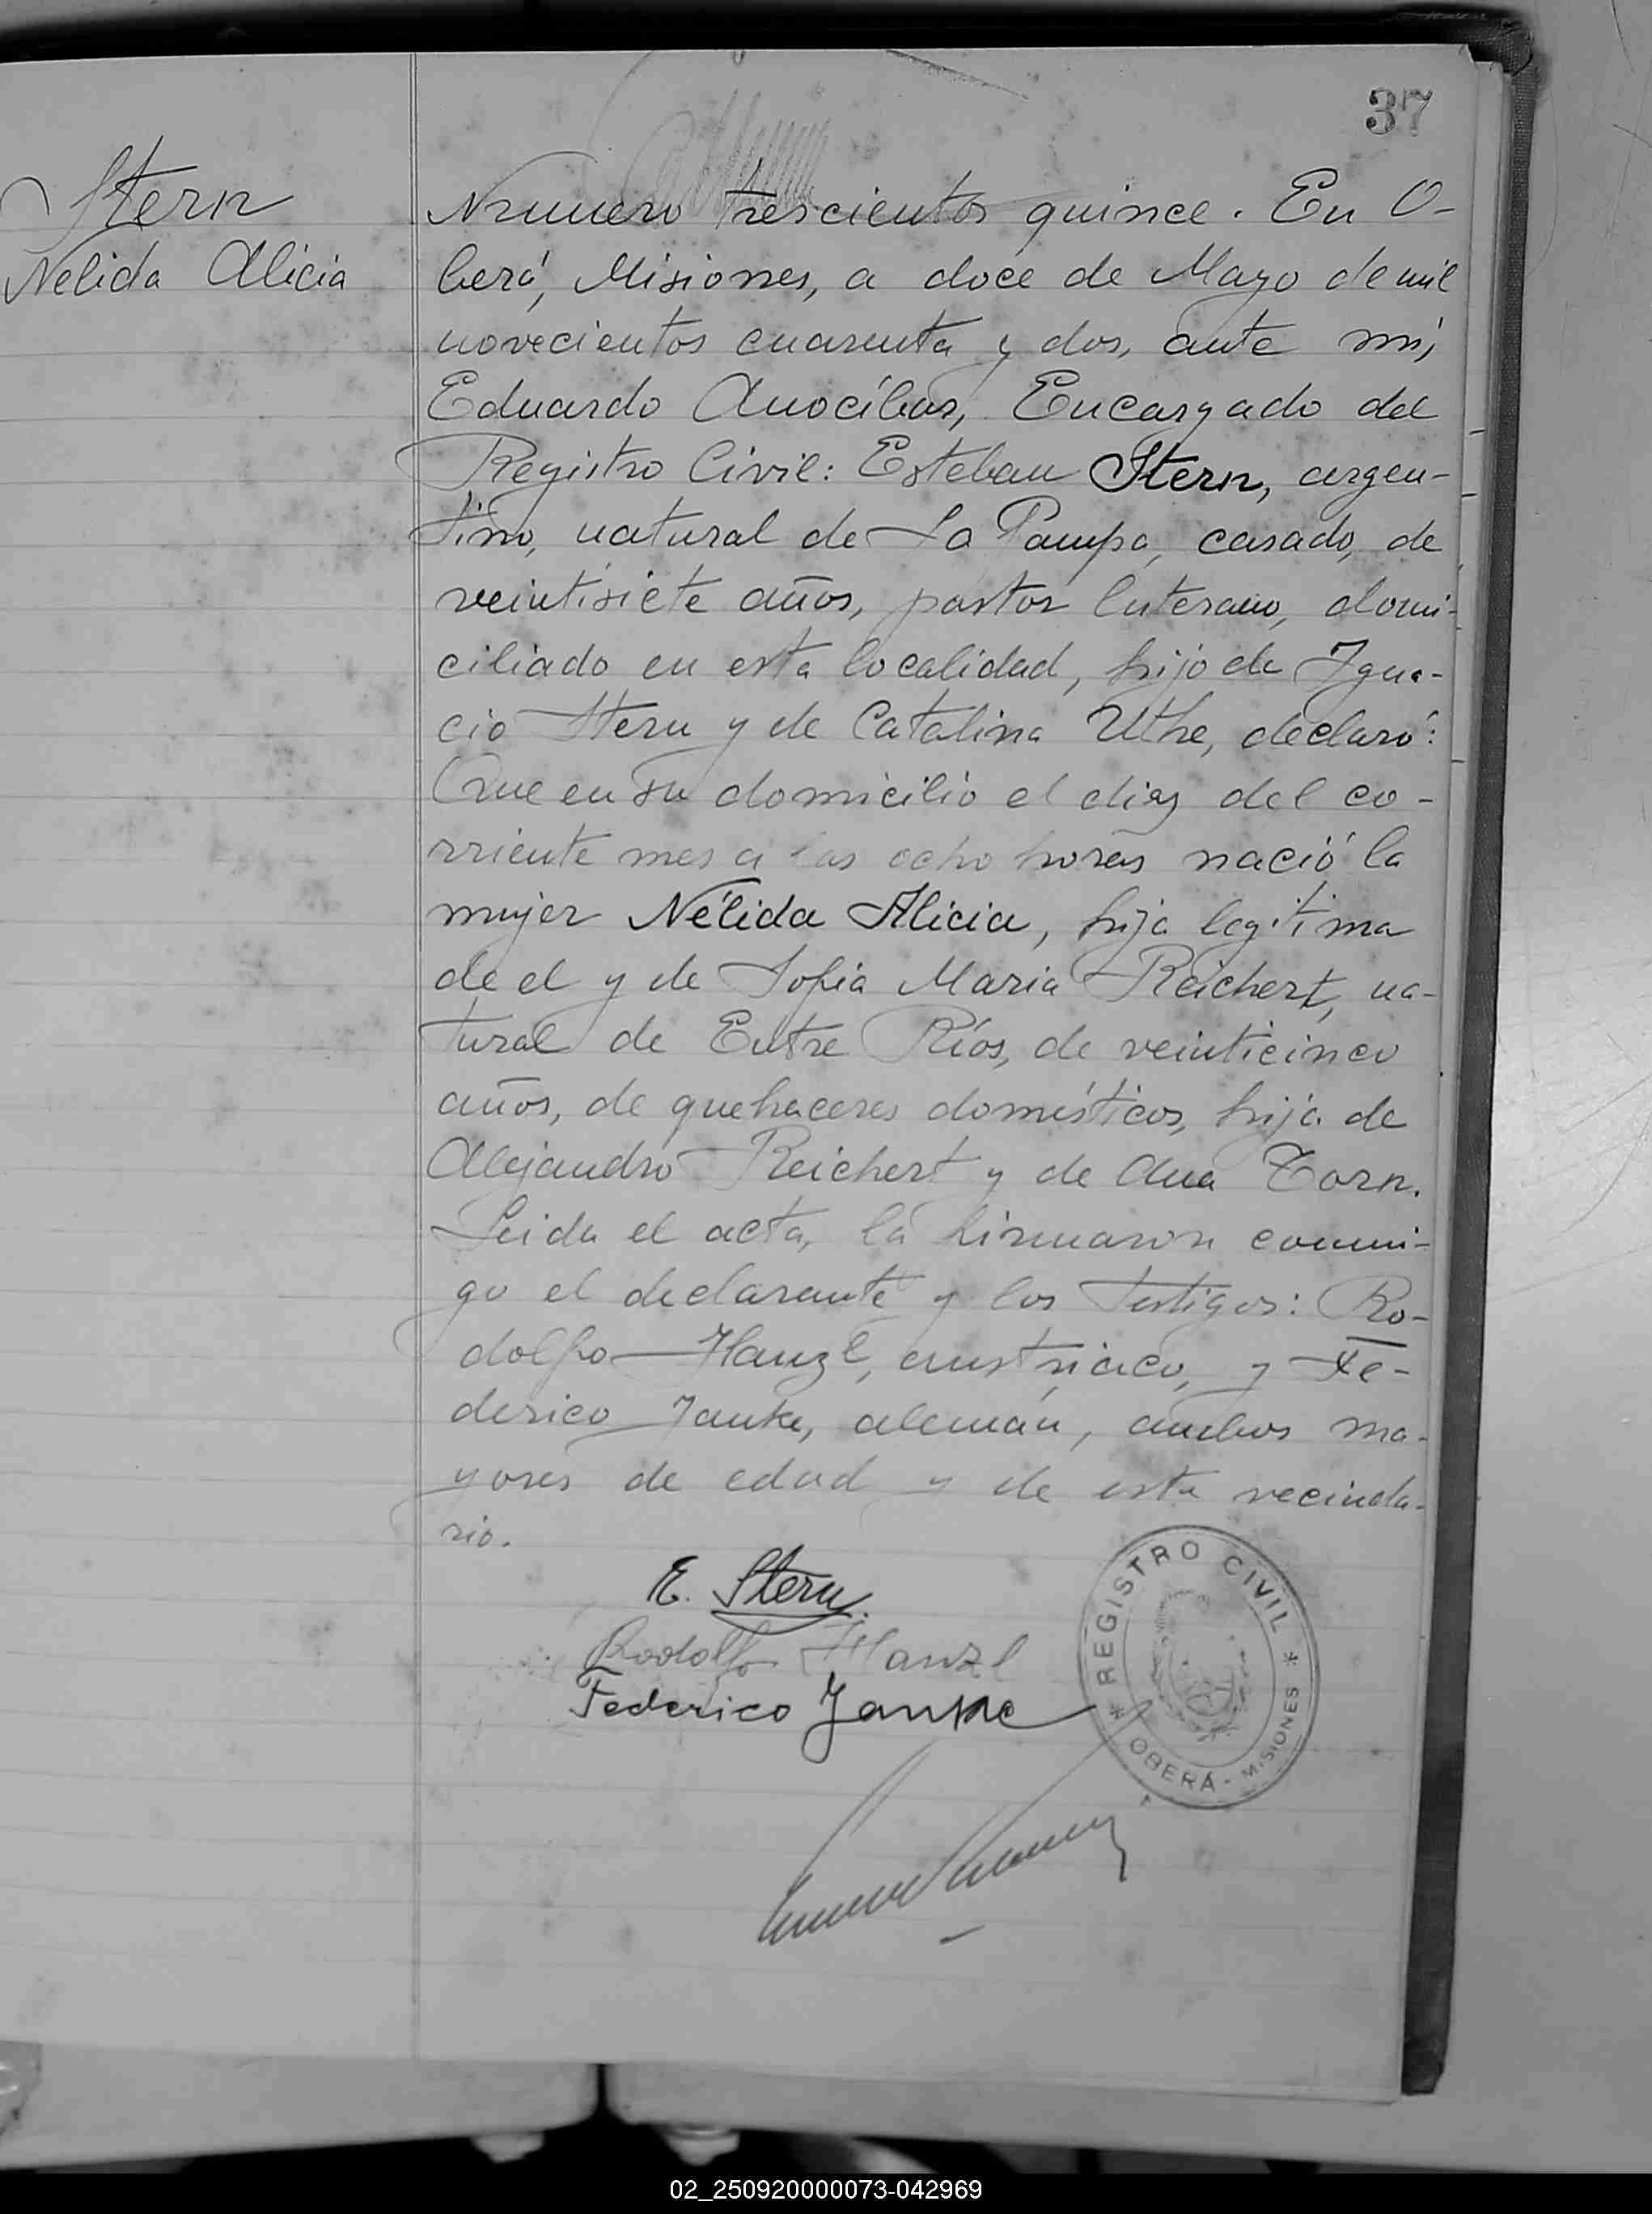 37
Stern
Nelida Alicia
Número trescientos quince. En O-
berá, Misiones, a doce de Mayo de mil
novecientos cuarenta y dos, ante mí,
Eduardo Anocíbar, Encargado del
Registro Civil: Esteban Stern, argen-
tino, natural de La Pampa, casado, de
veintisiete años, pastor luterano, domi-
ciliado en esta localidad, hijo de Igna-
cio Stern y de Catalina Uthe, declaró:
Que en su domicilio el diez del co-
rriente mes a las ocho horas nació la
mujer Nélida Alicia, hija legítima
de el y de Sofia Maria Reichert, na-
tural de Entre Ríos, de veinticinco
años, de quehaceres domésticos, hija de
Alejandro Reichert y de Ana Torn.
Leida el acta, la firmaron conmi-
go el declarante y los testigos: Ro-
dolfo Hanzl, austriaco, y Fe-
derico Janke, alemán, ambos ma-
yores de edad y de este vecinda-
rio.
E. Stern.
Rodolfo Hanzl
Federico Janke
* REGISTRO CIVIL *
OBERÁ - MISIONES
02_250920000073-042969